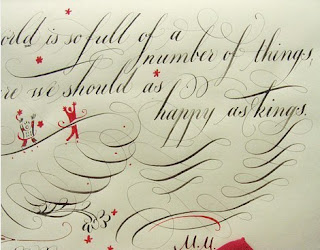 orld is so full of a
number of things,
re we should as
happy as kings.
M.M.